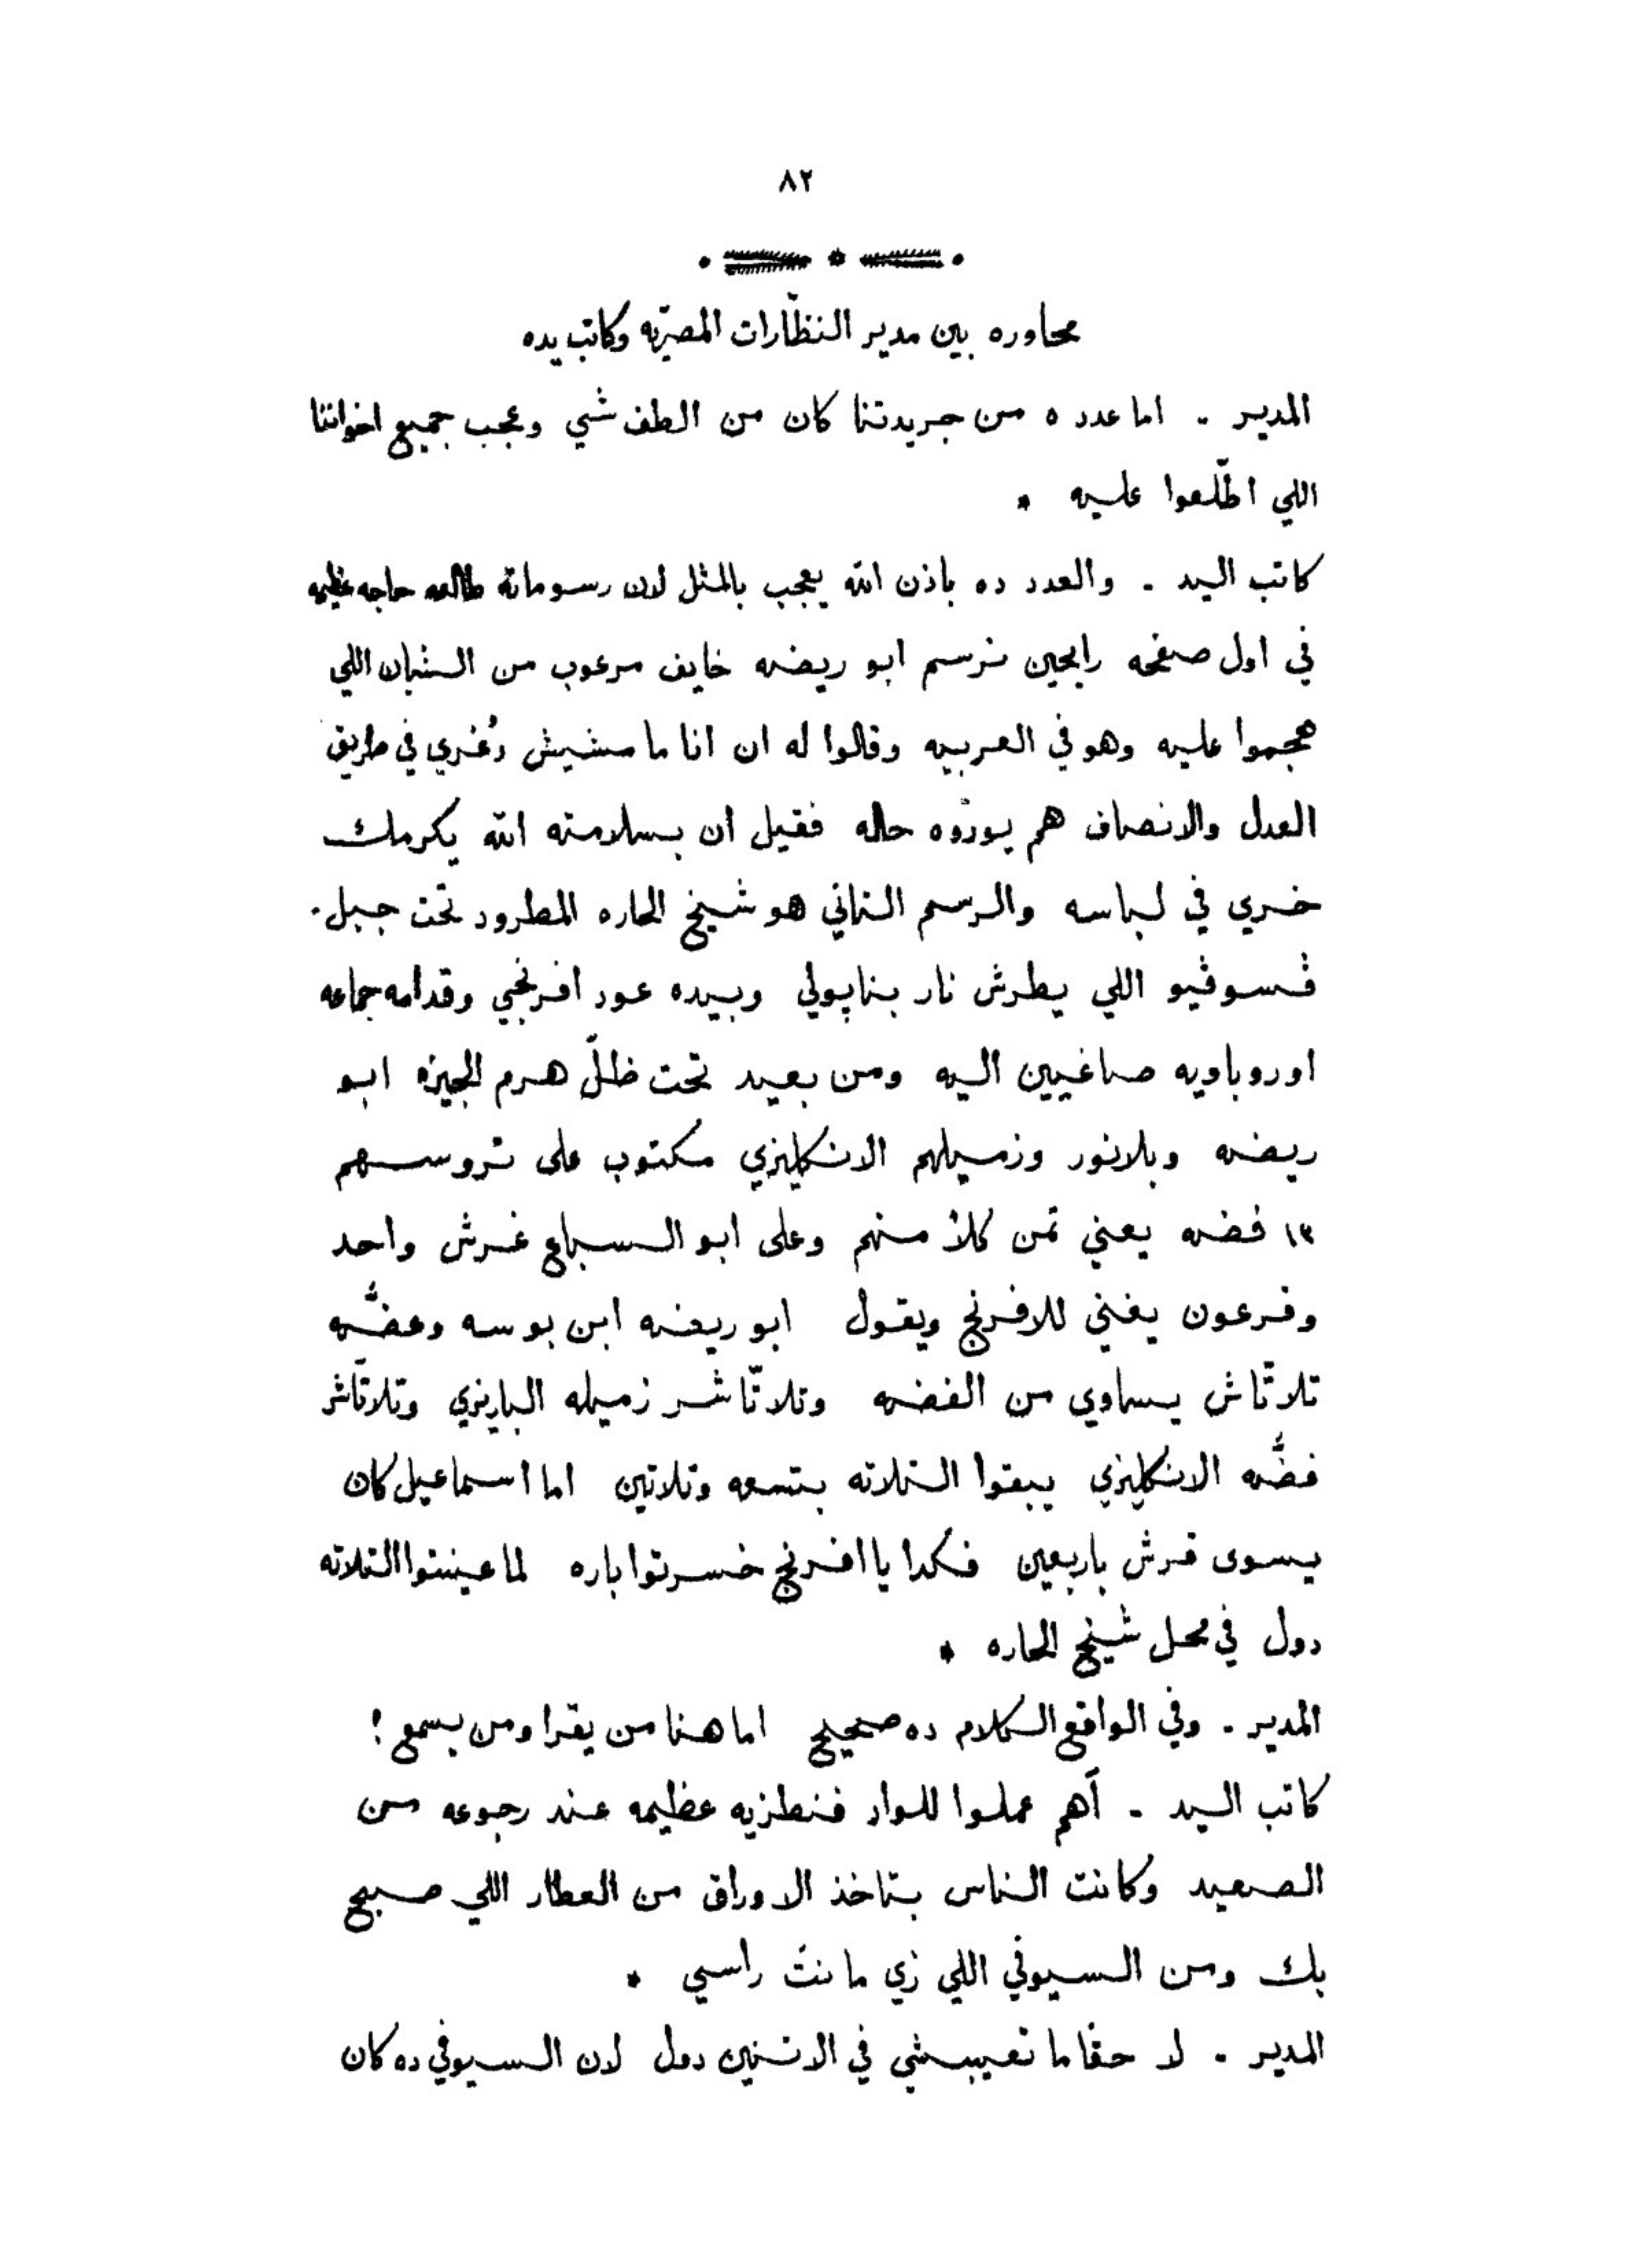 ٨٢
محاوره بين مدير النظّارات المصريّه وكاتب يده
المدير . اما عدد ٥ من جريدتنا كان من الطف شي وعجب جميع اخواننا
اللي اطّلعوا عليه *
كاتب اليد . والعدد ده باذن الله يعجب بالمثل لان رسوماته طالعه حاجه عظيمه
في اول صفحه رايحين نرسم ابو ريضه خايف مرعوب من الشبان اللي
هجموا عليه وهو في العربيه وقالوا له ان انا ما مشيش دُغري في طريق
العدل والانصاف هم يورّوه حاله فقيل ان بسلامته الله يكرمك
خري في لباسه والرسم التاني هو شيخ الحاره المطرود تحت جبل
ڤسوڤيو اللي يطرش نار بناپولي وبيده عود افرنجي وقدامه جماعه
اوروباويه صاغيين اليه ومن بعيد تحت ظلّ هرم الجيزه ابو
ريضه وبلانور وزميلهم الانكليزي مكتوب على تروسهم
١٣ فضه يعني تمن كلاً منهم وعلى ابو السباع غرش واحد
وفرعون يغني للافرنج ويقول ابو ريضه ابن بوسه وعضُّه
تلاتّاش يساوي من الفضه وتلاتّاشر زميله الباريزي وتلاتّاشر
فضُّه الانكليزي يبقوا التلاته بتسعه وتلاتين اما اسماعيل كان
يسوى قرش باربعين فكدا يا افرنج خسرتوا باره لما عينتوا التلاته
دول في محل شيخ الحاره *
المدير . وفي الواقع الكلام ده صحيح اما هنا من يقرا ومن يسمع !
كاتب اليد . أهم عملوا للواد فنطزيه عظيمه عند رجوعه من
الصعيد وكانت الناس بتاخذ الاوراق من العطار اللي صبح
بك ومن السيوفي اللي زي مانتَ راسي *
المدير . لا حقّا ما تعيبشي في الاتنين دول لان السيوفي ده كان